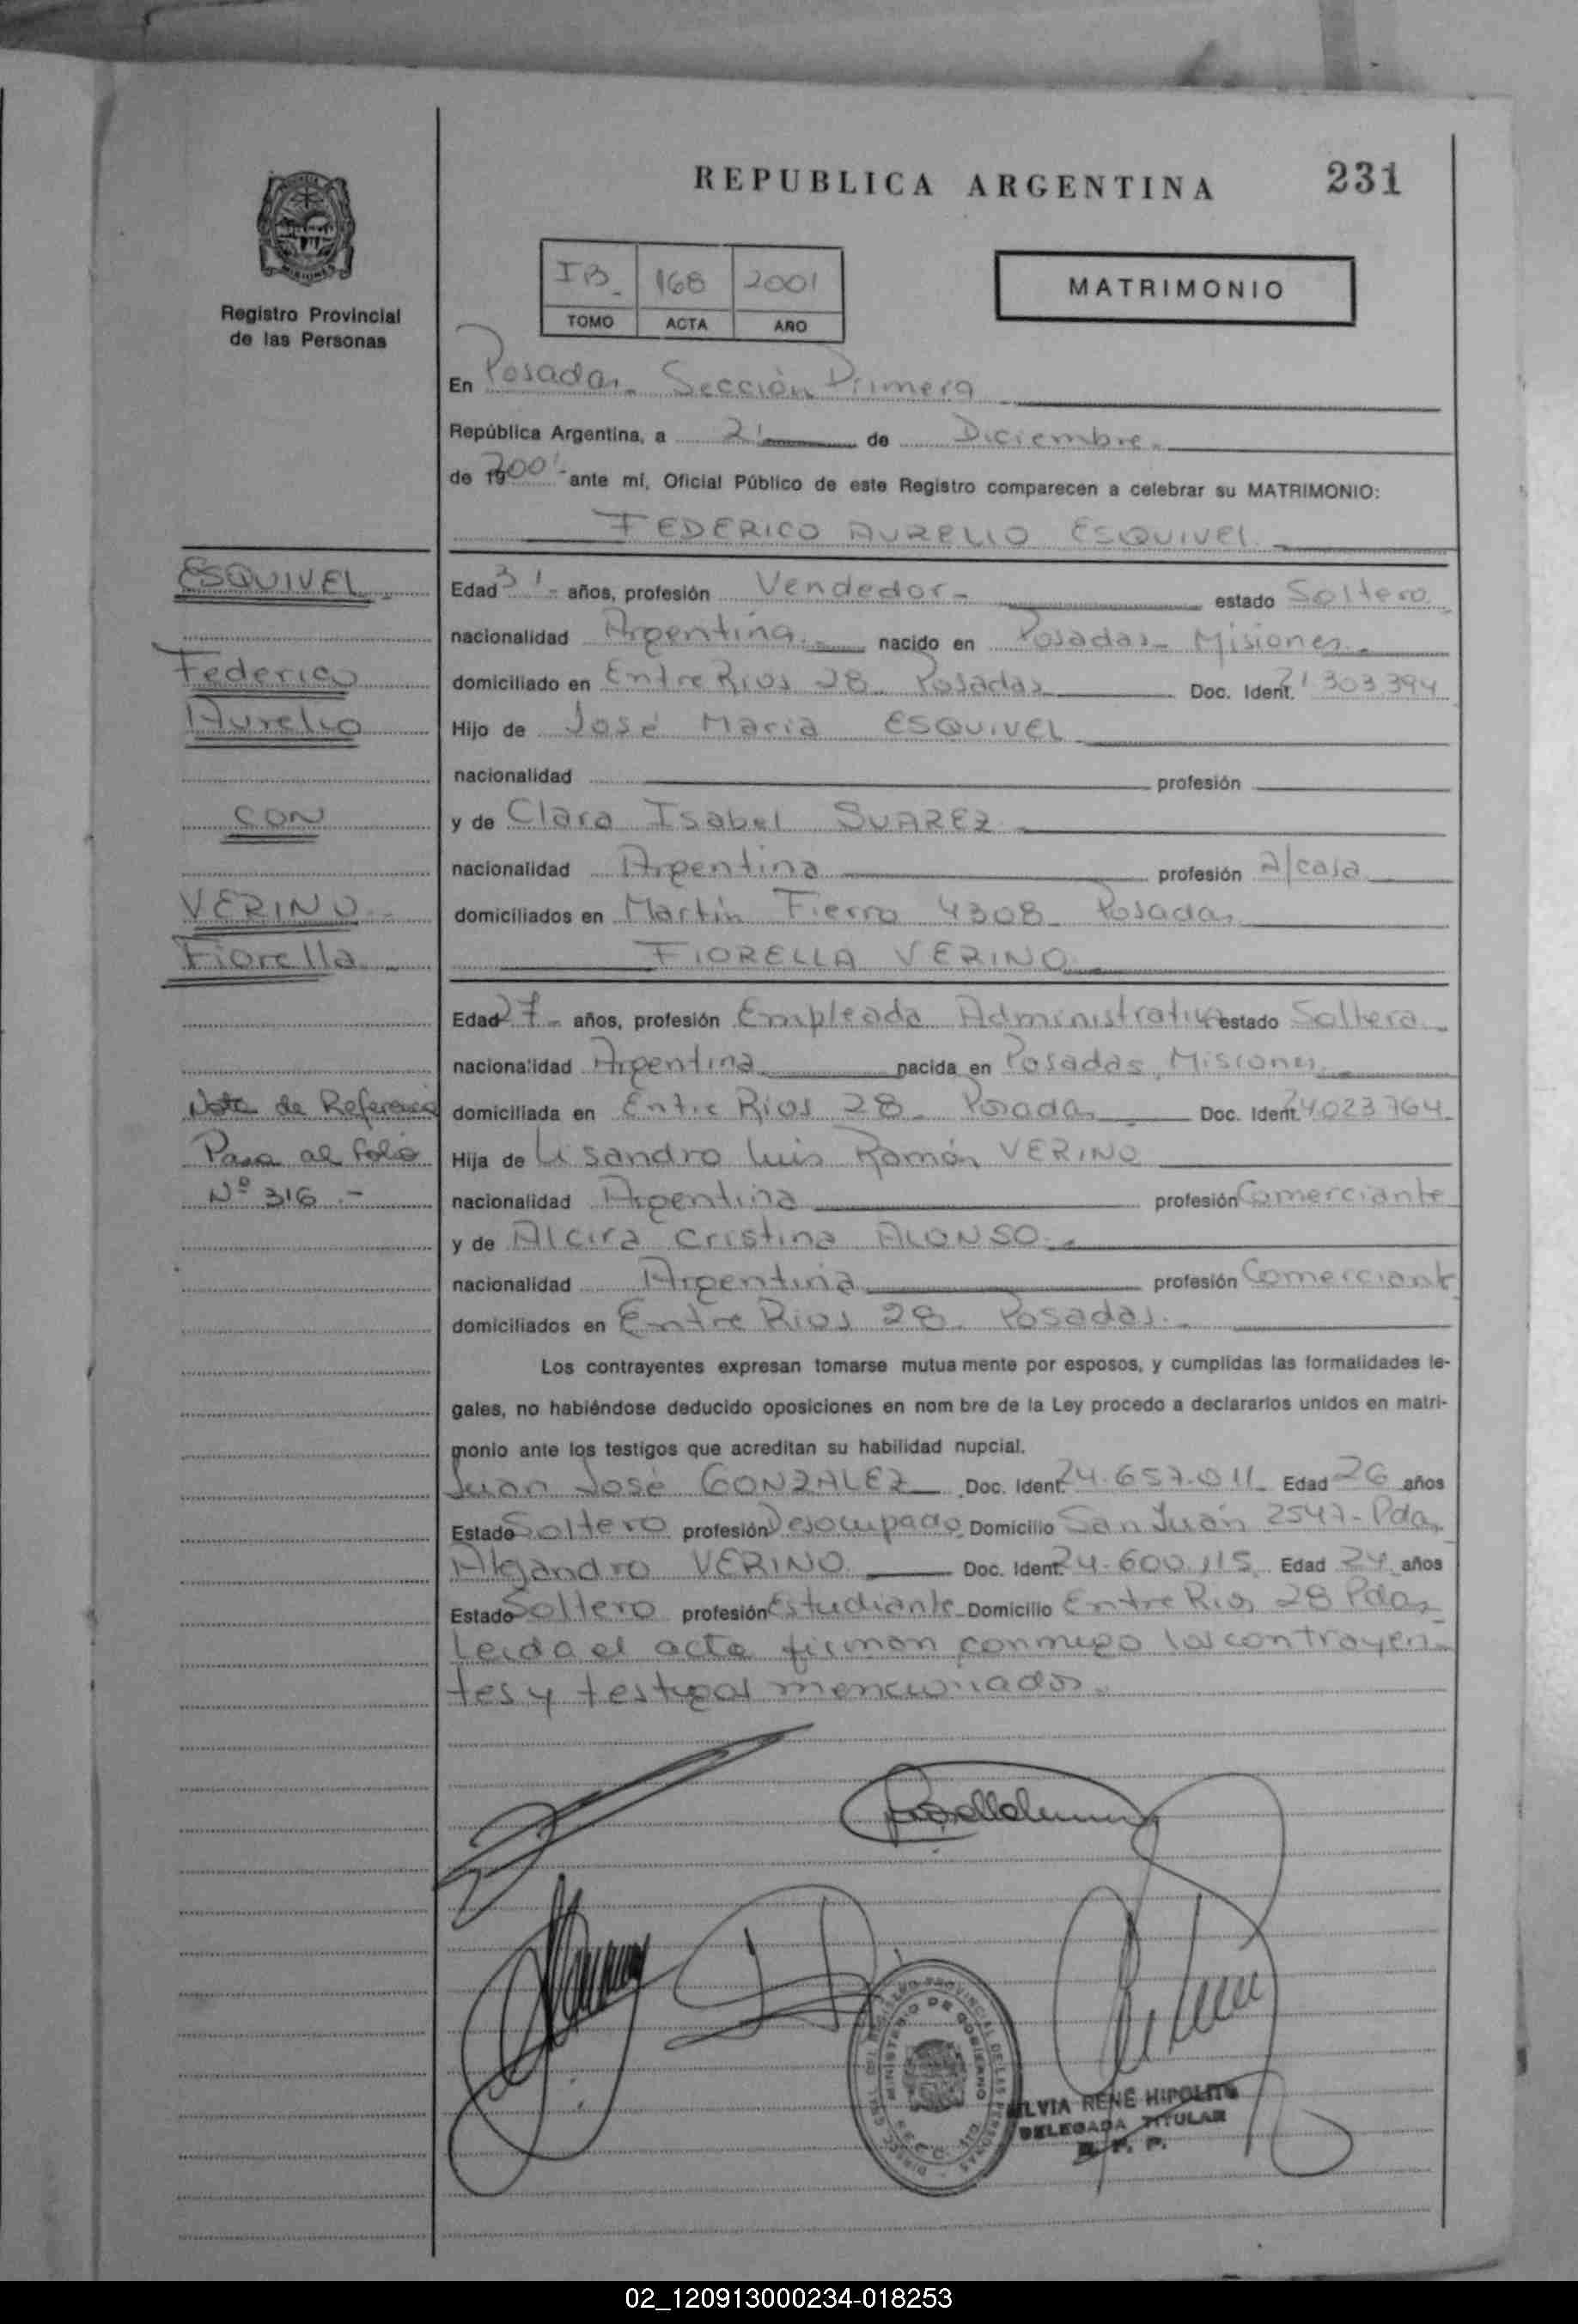 REPUBLICA ARGENTINA
231
Registro Provincial
de las Personas
IB. 168 2001
TOMO ACTA AÑO
MATRIMONIO
En Posadas. Sección Primera
República Argentina, a 21 de Diciembre.
de 2001- ante mí, Oficial Público de este Registro comparecen a celebrar su MATRIMONIO:
FEDERICO AURELIO ESQUIVEL
ESQUIVEL
Federico
Aurelio
CON
VERINO
Fiorella
Nota de Referencia
Pasa al folio
Nº 316.-
Edad 31- años, profesión Vendedor- estado Soltero
nacionalidad Argentina nacido en Posadas- Misiones
domiciliado en Entre Rios 28. Posadas Doc. Ident. 21303394
Hijo de José Maria ESQUIVEL
nacionalidad profesión
y de Clara Isabel SUAREZ
nacionalidad Argentina profesión A/casa
domiciliados en Martín Fierro 4308 Posadas
FIORELLA VERINO
Edad 27- años, profesión Empleada Administrativa estado Soltera
nacionalidad Argentina nacida en Posadas, Misiones
domiciliada en Entre Rios 28. Posadas Doc. Ident. 24023764
Hija de Lisandro Luis Ramón VERINO
nacionalidad Argentina profesión Comerciante
y de Alcira Cristina ALONSO
nacionalidad Argentina profesión Comerciante
domiciliados en Entre Rios 28. Posadas.
Los contrayentes expresan tomarse mutua mente por esposos, y cumplidas las formalidades le-
gales, no habiéndose deducido oposiciones en nom bre de la Ley procedo a declararlos unidos en matri-
monio ante los testigos que acreditan su habilidad nupcial.
Juan José GONZALEZ Doc. Ident. 24.657.011 Edad 26 años
Estado Soltero profesión Desocupado Domicilio San Juan 2547- Pdas
Alejandro VERINO Doc. Ident. 24.600.115 Edad 24 años
Estado Soltero profesión Estudiante Domicilio Entre Rios 28 Pdas
Leida el acta firman conmigo los contrayen-
tes y testigos mencionados.
DIRECC. GRAL. DEL REGISTRO PROVINCIAL DE LAS PERSONAS
MINISTERIO DE GOBIERNO
SILVIA RENÉ HIPOLITO
DELEGADA TITULAR
R. P. P.
02_120913000234-018253